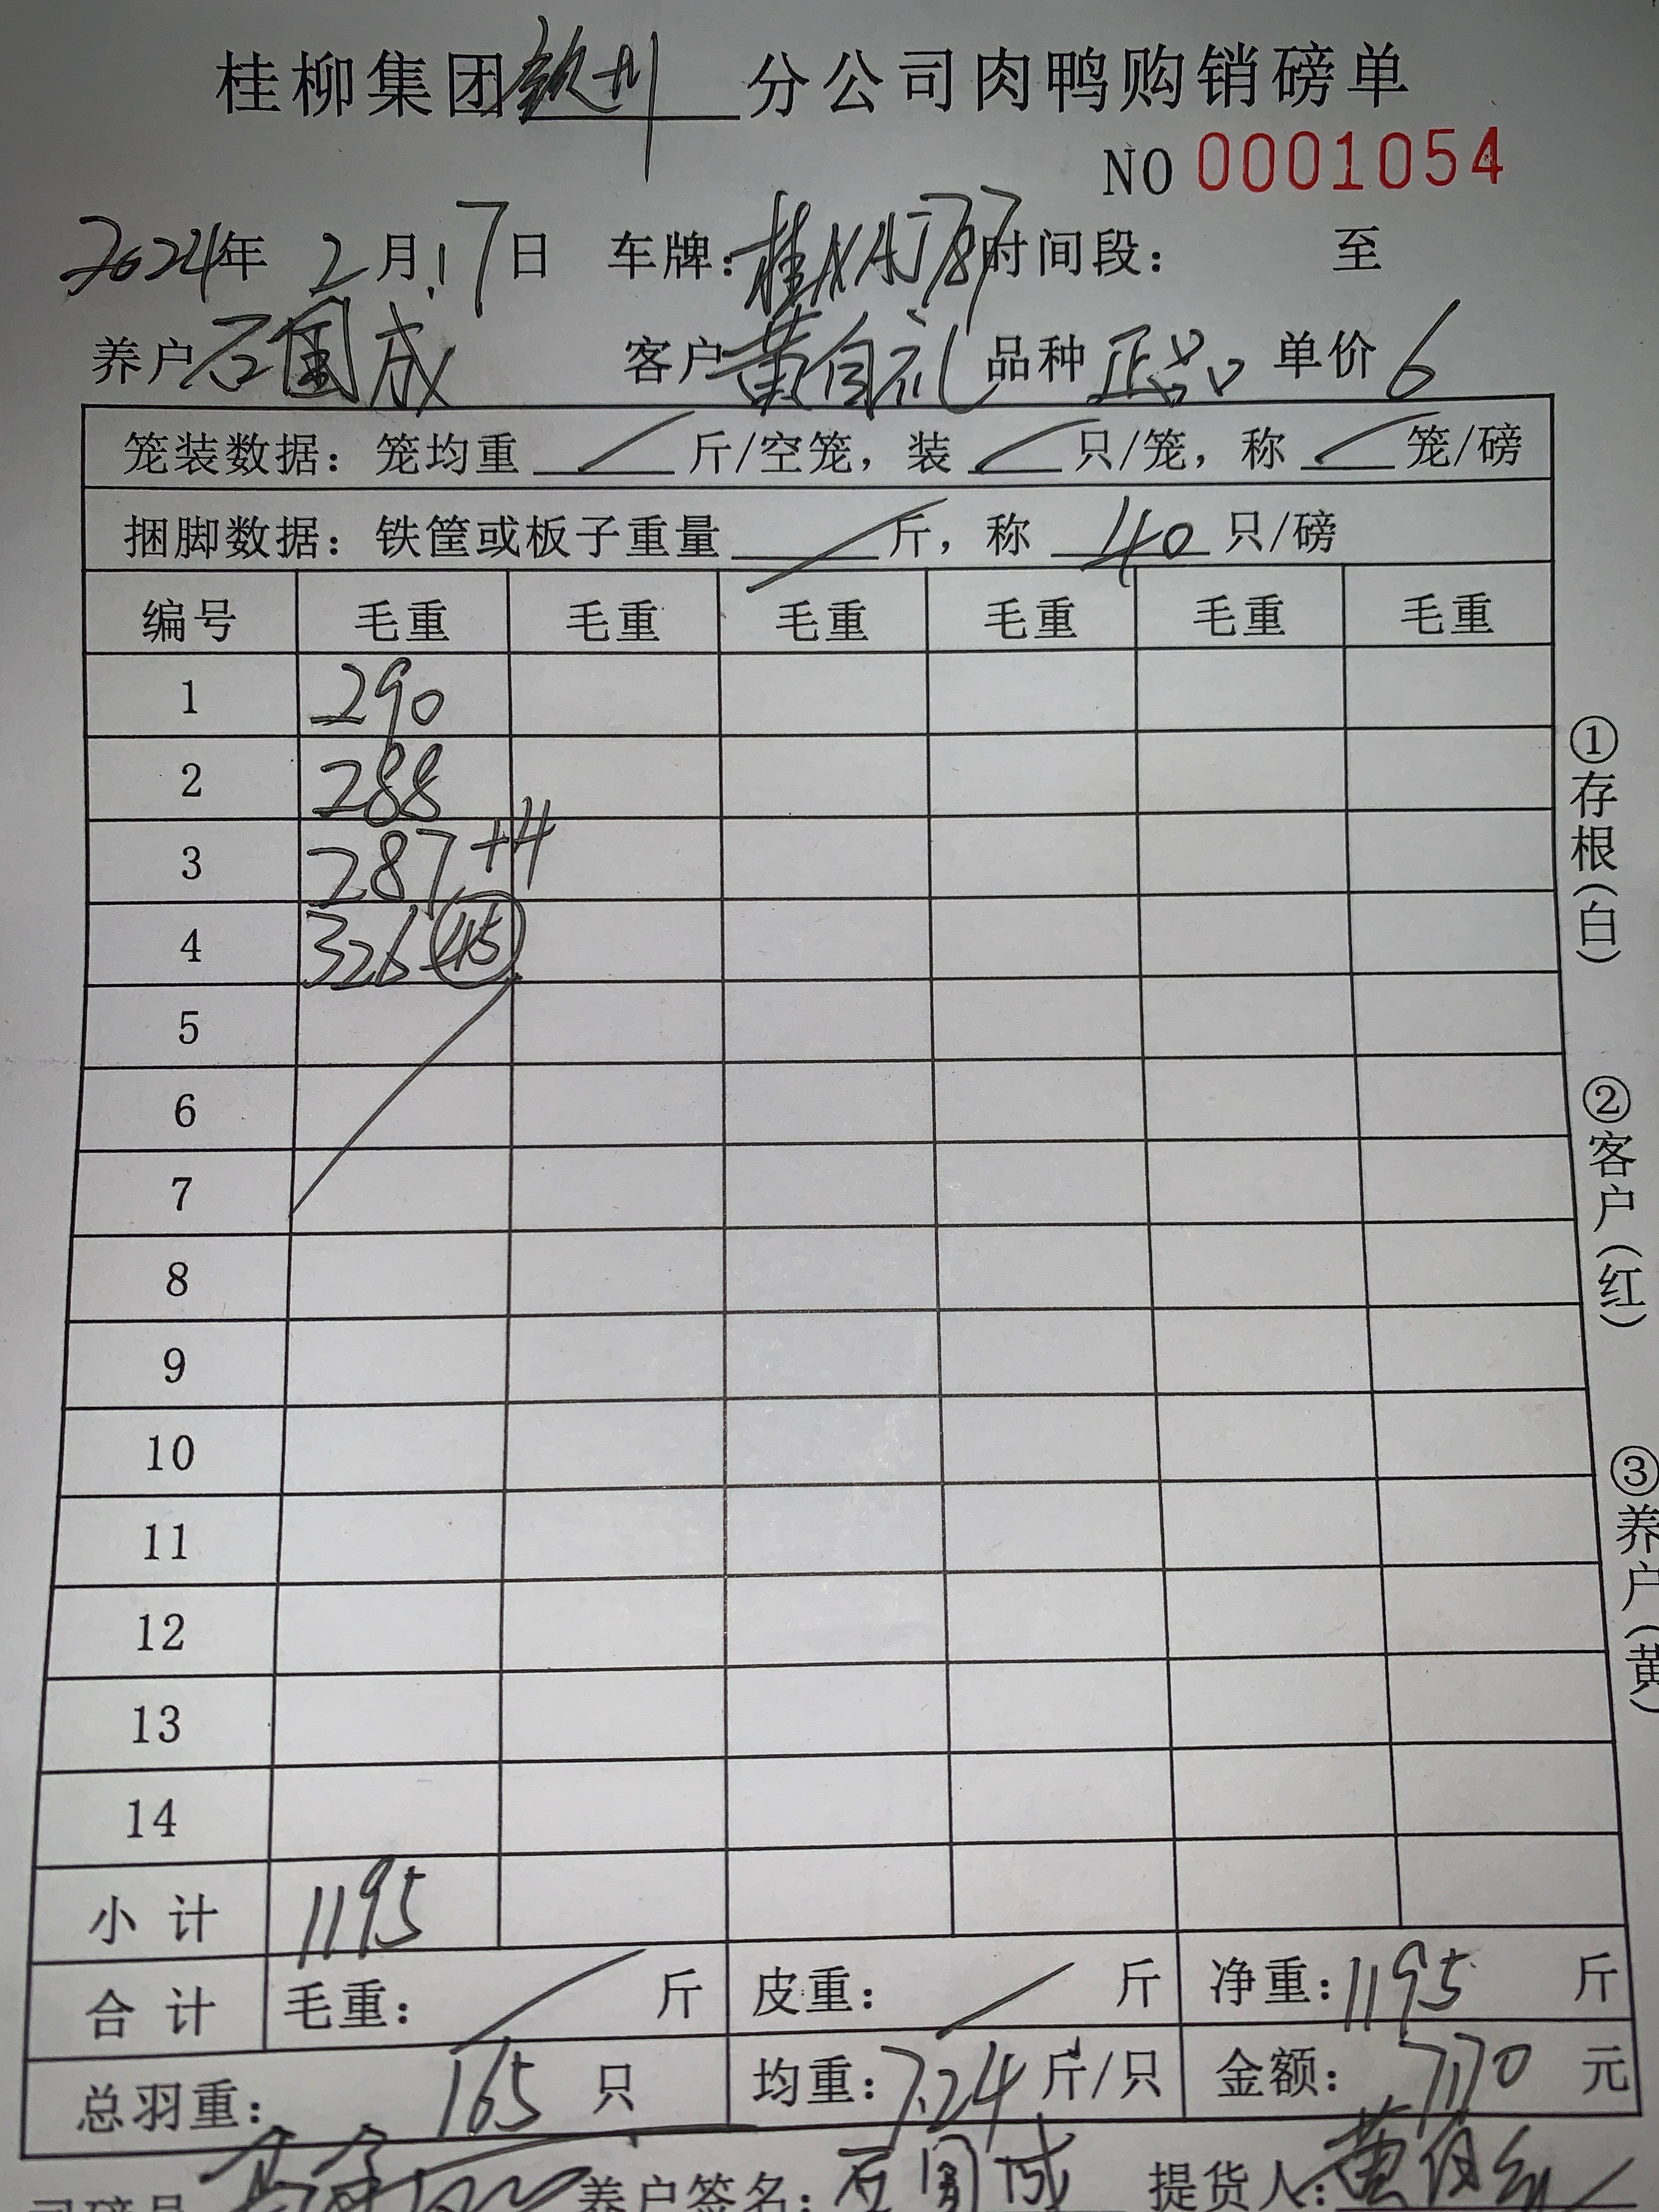 桂柳集团钦州分公司肉鸭购销磅单
NO 0001054
2024年 2月17日 车牌: 时间段: 至
养户 石国成 客户 黄自礼 品种 正品 单价 6
笼装数据: 笼均重 / 斤/空笼, 装 / 只/笼, 称 / 笼/磅
捆脚数据: 铁筐或板子重量 / 斤, 称 40 只/磅
编号 毛重 毛重 毛重 毛重 毛重 毛重
1 290
2 288
3 287 +4
4 326 45
5
6
7
8
9
10
11
12
13
14
小计 1195
合计 毛重: / 斤 皮重: / 斤 净重: 1195 斤
总羽重: 165 只 均重: 7.24 斤/只 金额: 7170 元
司磅员 养户签名: 石国成 提货人:
①存根(白)
②客户(红)
③养户(黄)